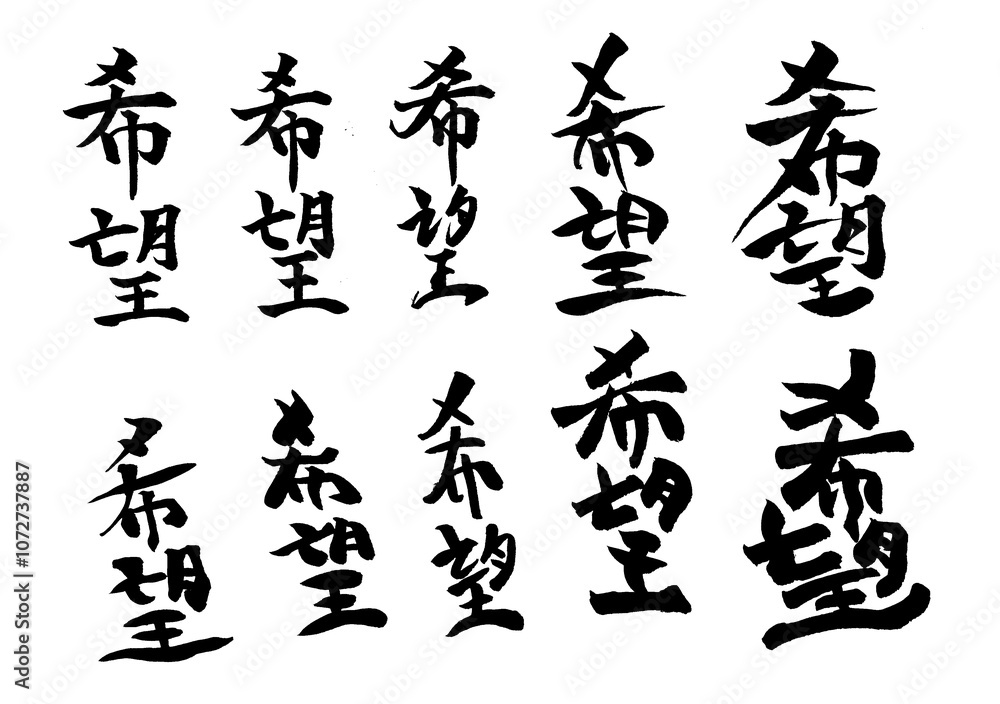 希望
希望
希望
希望
希望
希望
希望
希望
希望
希望
Adobe Stock | #1072737887